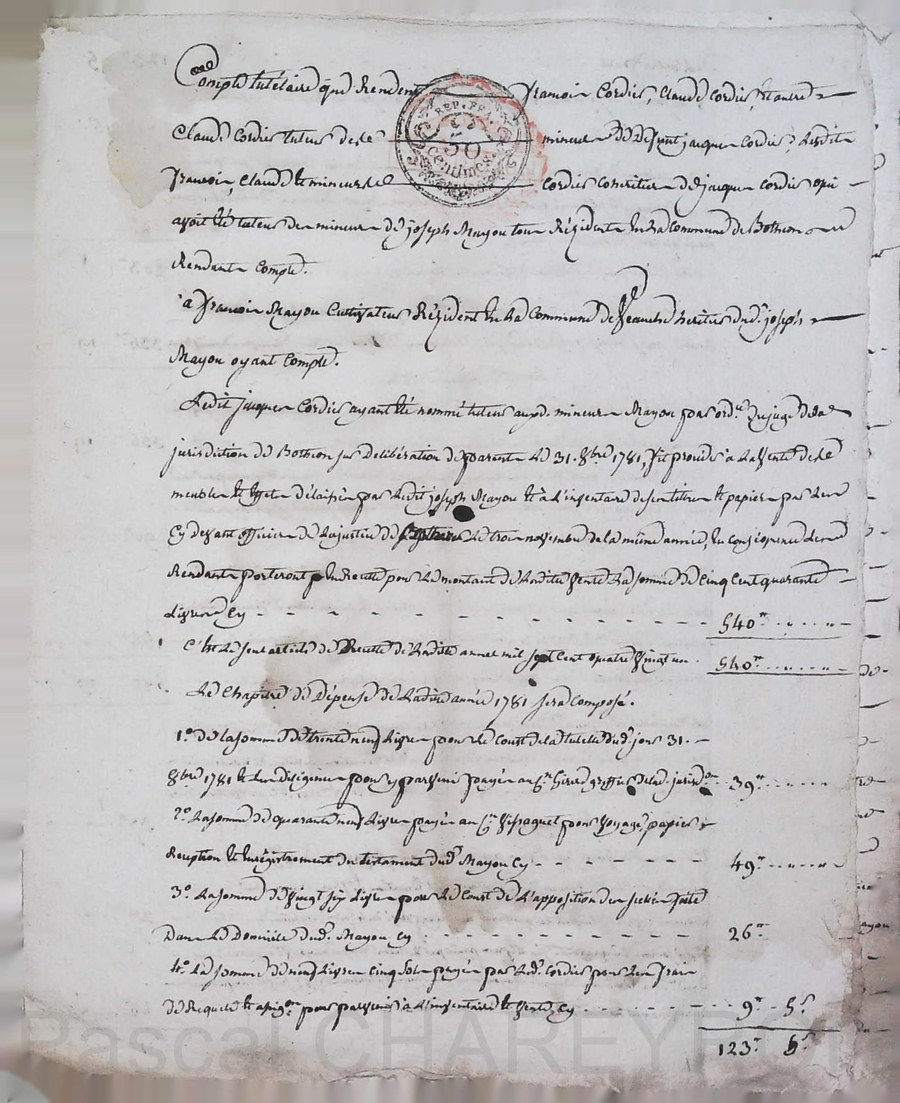 Compte tutelaire que Rendent françois Cordier, Claude Cordier, & autre
Claude Cordier tuteur de le mineur de Defunt jacques Cordier, Lesdits
françois, Claude & mineur de Cordier Coheritiers de jacques Cordier qui
avoit été tuteur des mineurs de joseph Mayou tous Résidents En La Commune de Botheon
Rendants Compte.
a françois Mayou Cultivateur Résident En La Commune de heritier dud. joseph
Mayou oyant Compte.
Ledit jacques Cordier ayant été nommé tuteur auxd. mineurs Mayou par ord.ce du juge de la
jurisdiction de Botheon sur Deliberation de parents Le 31. 8bre 1781, fit proceder a La Vente de
meubles & effets délaissés par Ledit joseph Mayou & à L'inventaire de ses titres & papiers par Les
Cy devant officiers de La justice de Le trois novembre de la même année, En Consequence Les
Rendants porteront En Recette pour Le montant de Ladite Vente La somme de Cinq Cent quarante
Livres Cy - - - - - - - - - 540.tt
C'est Le seul article de Recette de Ladite année mil sept Cent quatre Vingt un . 540.tt
Le Chapitre de Dépense de Ladite année 1781 sera Composé.
1.° de la somme de trente neuf Livres pour Le Coust de la tutelle dud. jour 31.
8bre 1781 & Les diligences pour y parvenir payée au Sr. Girerd greffier de lad. jurisd.on 39.tt
2.° La somme de quarante neuf Livres payée au Sr. pour Voyage, papier &
Reception & Enregistrement du testament dud. Mayou Cy - - - 49.tt
3.° La somme de Vingt six Livres pour Le Coust de L'apposition des scellés faite
Dans Le Domicile dud. Mayou Cy - - - - - 26.tt
4.° La somme de neuf Livres Cinq Sols payée par Led. Cordier pour Les frais
de Requete & pour parvenir à L'inventaire & Vente Cy - - - - 9.tt 5.s
123.tt 5.s
REP. FRA.
50
Centimes.
Pascal CHAREYRON